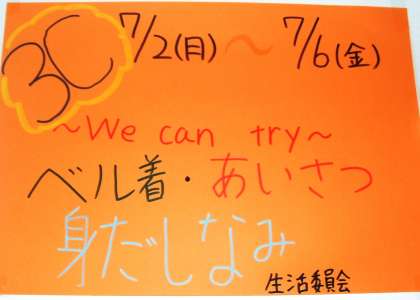 3C 7/2(月)～7/6(金)
～We can try～
ベル着・あいさつ
身だしなみ
生活委員会